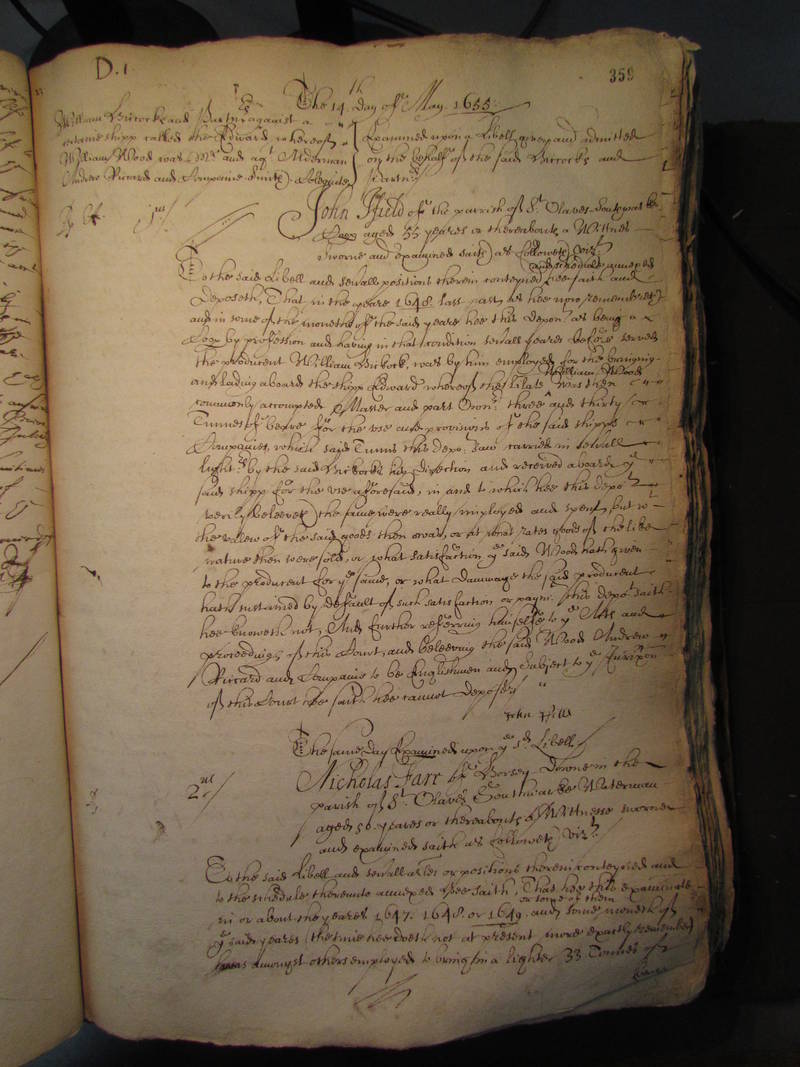 D.1
359
The 14th Day of May 1655:
William Hitcocke and Partner against a
certaine shipp called the Edward whereof
William Wood was Mr and agt Alderman
Andrew Riccard and Companie
Examined upon a Libell given and admitted
on the behalfe of the said Hitcocks and
Partner
1us
John Ffield of the parrish of St Olaves Southwarke
aged 55 yeares or thereabouts a Wittnes
sworne and examined saith as followeth vizt
and schedule annexed
To the said Libell and severall positions therein conteyned hee saith and
deposeth, That in the yeare 1648 last past as hee now remembreth
and in some of the moneths of the said yeare hee this Deponent as being a
by profession and having in that condition severall yeares before served
the producent William Hitcock, was by him employed for the bringing
William Wood
and lading aboard the shipp Edward whereof the late was then
commonly accompted Master and part Owner three and thirty
Tunnes of beere for the use and provisions of the said shipps
Companies, which said Tunns this depot saw carried in severall
lighters by the said Hitcocks his direction and received aboard ye
said shipp for the use aforesaid, in and to which hee this depot
verily beleeveth the same were really imployed and spent, but
the vallew of the said goods then was, or at what rates goods of the like
nature then were sold, or what satisfaction ye said Wood hath given
to the producent for ye same, or what dammage the said producent
hath susteined by default of such satisfaction or paymt this depot saith
hee knoweth not, And further referring himselfe to ye Acts and
proceedings of this Court, and beleeving the said Wood Andrew
Riccard and Companie to be Englishmen and subject to ye Jurison
of this Court hee saith hee cannot depose
John Ffilld
The same day Examined upon ye sd Libell
2us
Nicholas Farr of Horsey Downe in the
parish of St Olaves Southwarke Waterman
aged 50 yeares or thereabouts a Wittnesse sworne
and examined saith as followeth vizt
To the said Libell and severall arles or positions therein conteyned and
to the schedule thereunto annexed hee saith, That hee this examinate
or some of them
in or about the yeares 1647. 1648. or 1649. and some moneth of
ye said yeares (the time hee doeth not at present more exactly remember)
was amongst others employed to bring in a lighter 33 Tonnes of